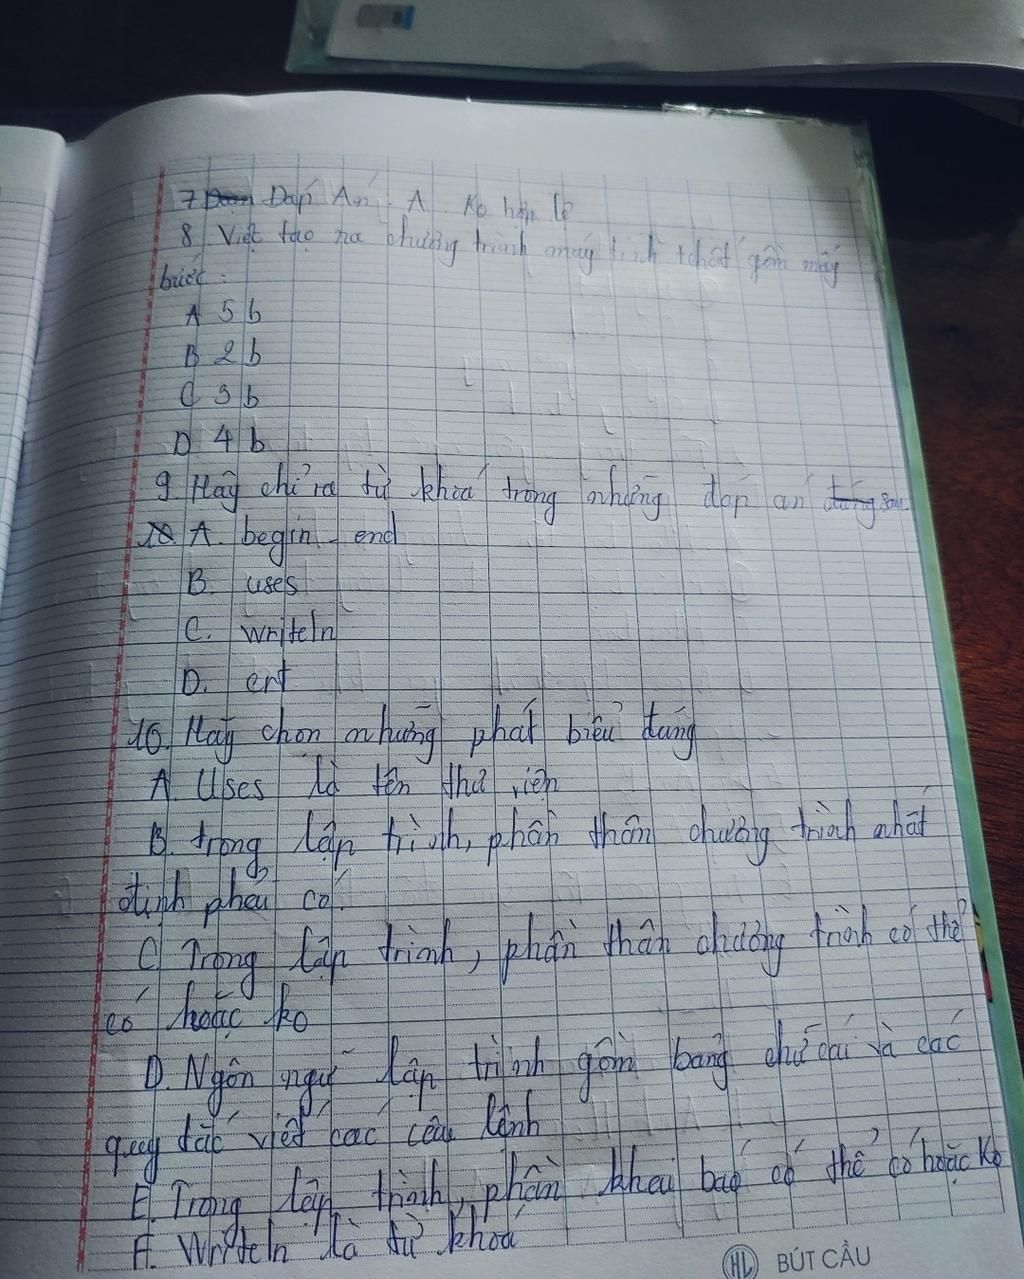 7 Dap Án - A Ko hợp lệ
8 Việt tạo ra chương trình máy tính tchất gồm mấy
bước :
A 5 b
B 2 b
C 3 b
D 4 b
9 Hãy chỉ ra từ khoá trong những đáp án sau.
A. begin - end
B. uses
C. writeln
D. ert
10. Hãy chọn những phát biểu đúng
A. Uses là tên thư viện
B. trong lập trình, phần thân chương trình nhất
định phải có.
C Trong lập trình, phần thân chương trình có thể
có hoặc ko
D. Ngôn ngữ lập trình gồm bảng chữ cái và các
quy tắc viết các câu lệnh
E. Trong lập trình, phần khai báo có thể có hoặc Ko
F. Writeln là từ khoá
HL BÚT CẦU